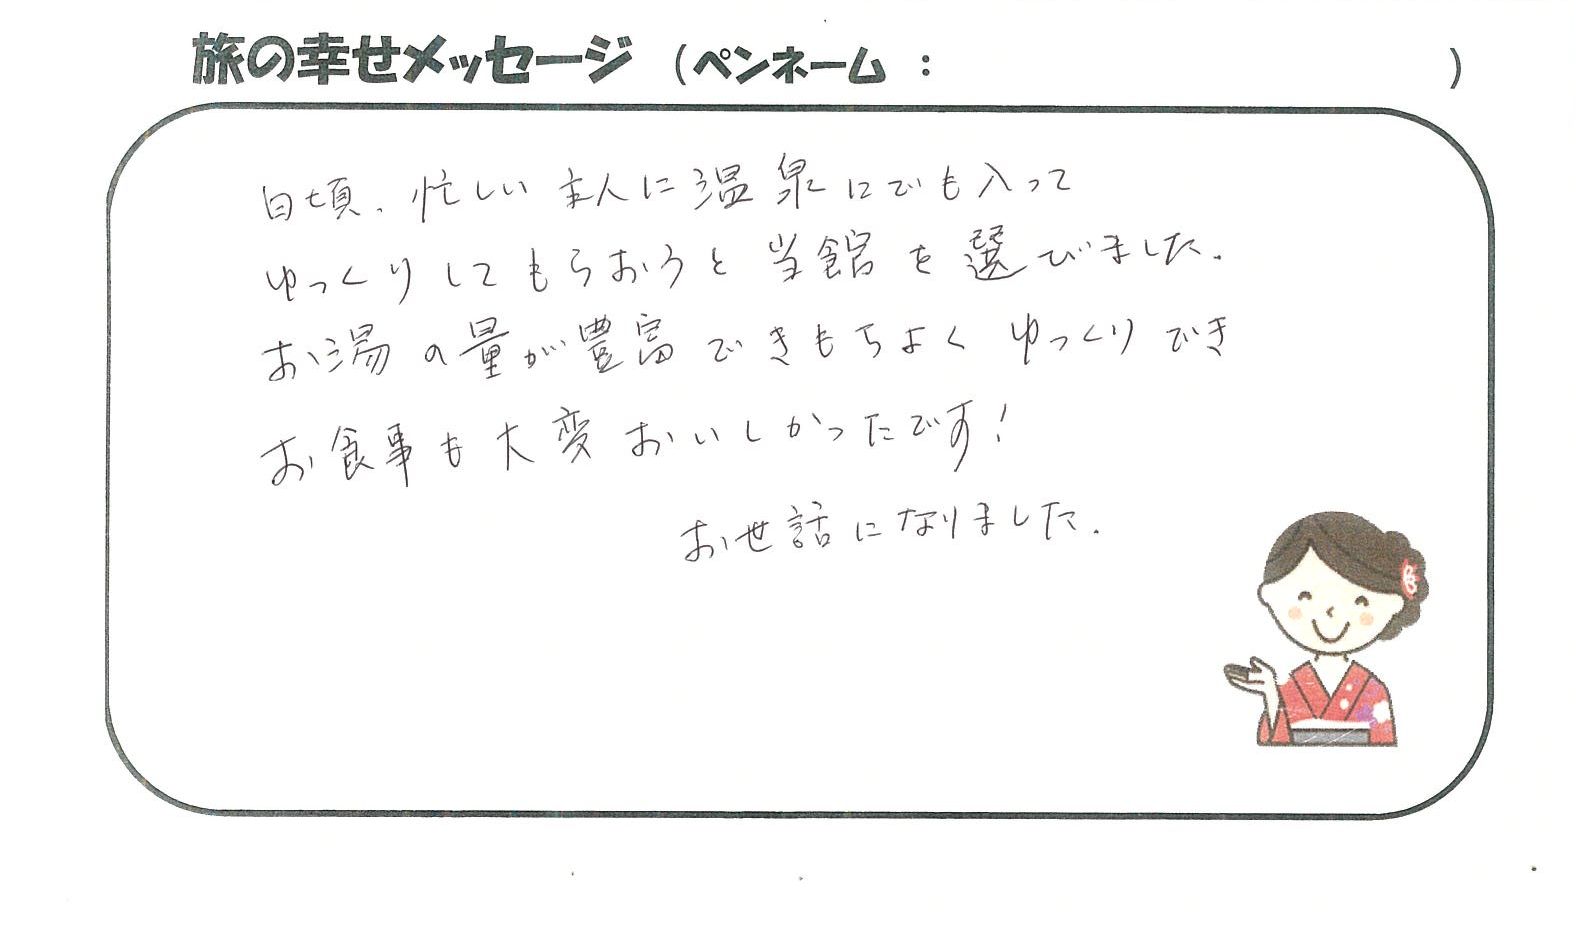 旅の幸せメッセージ (ペンネーム : )
日頃、忙しい主人に温泉にでも入って
ゆっくりしてもらおうと当館を選びました.
お湯の量が豊富できもちよくゆっくりでき
お食事も大変おいしかったです!
お世話になりました.